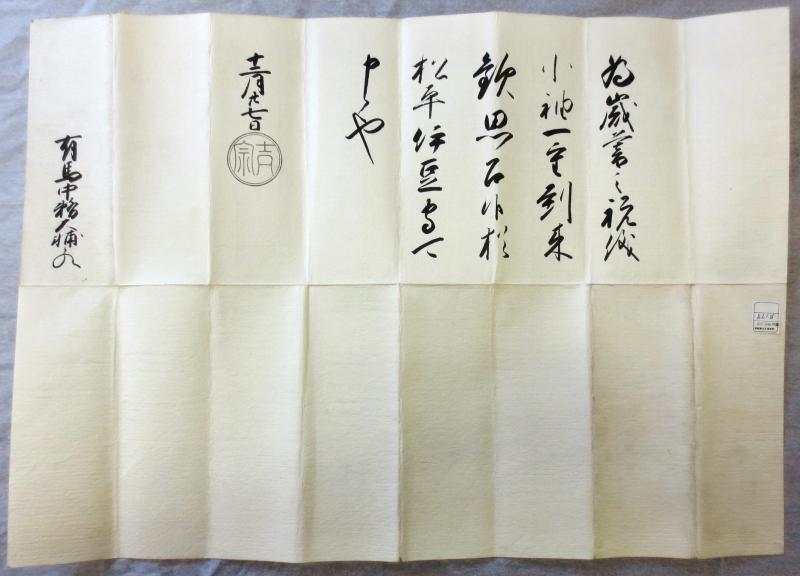 為歳暮之祝儀
小袖一重到来
歓思召候猶
松平伊豆守可
申也
十二月廿七日
吉宗
有馬中務大輔殿